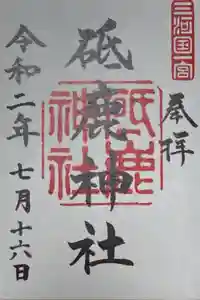 三河国一宮
奉拝
砥鹿神社
砥鹿神社
令和二年七月十六日